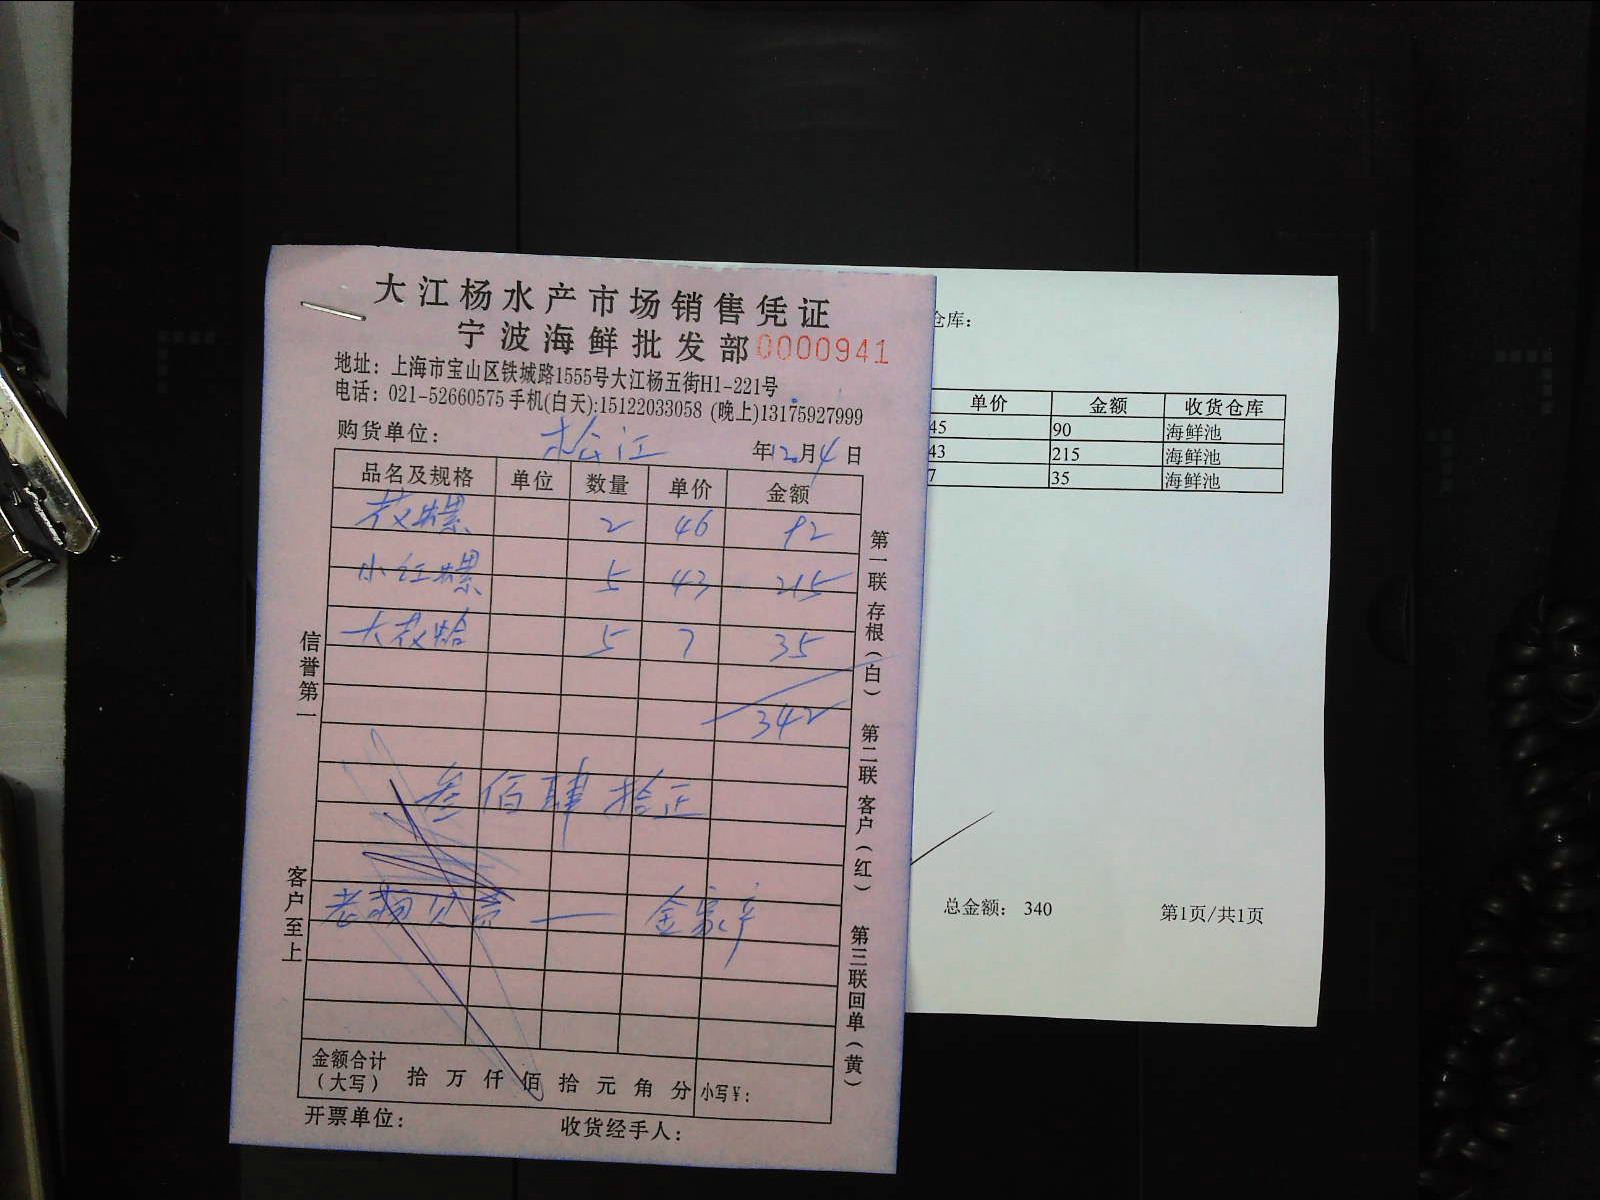 大江杨水产市场销售凭证
宁波海鲜批发部 0000941
地址：上海市宝山区铁城路1555号大江杨五街H1-221号
电话：021-52660575 手机(白天):15122033058 (晚上)13175927999
购货单位： 松江 年12月4日
品名及规格 单位 数量 单价 金额
花螺 2 46 92
小红螺 5 43 215
大花蛤 5 7 35
342
叁佰肆拾正
老杨 —— 金家
金额合计（大写） 拾 万 仟 佰 拾 元 角 分 小写￥：
开票单位： 收货经手人：
信誉第一
客户至上
第一联存根（白） 第二联客户（红） 第三联回单（黄）
仓库：
单价 金额 收货仓库
45 90 海鲜池
43 215 海鲜池
7 35 海鲜池
总金额： 340 第1页/共1页